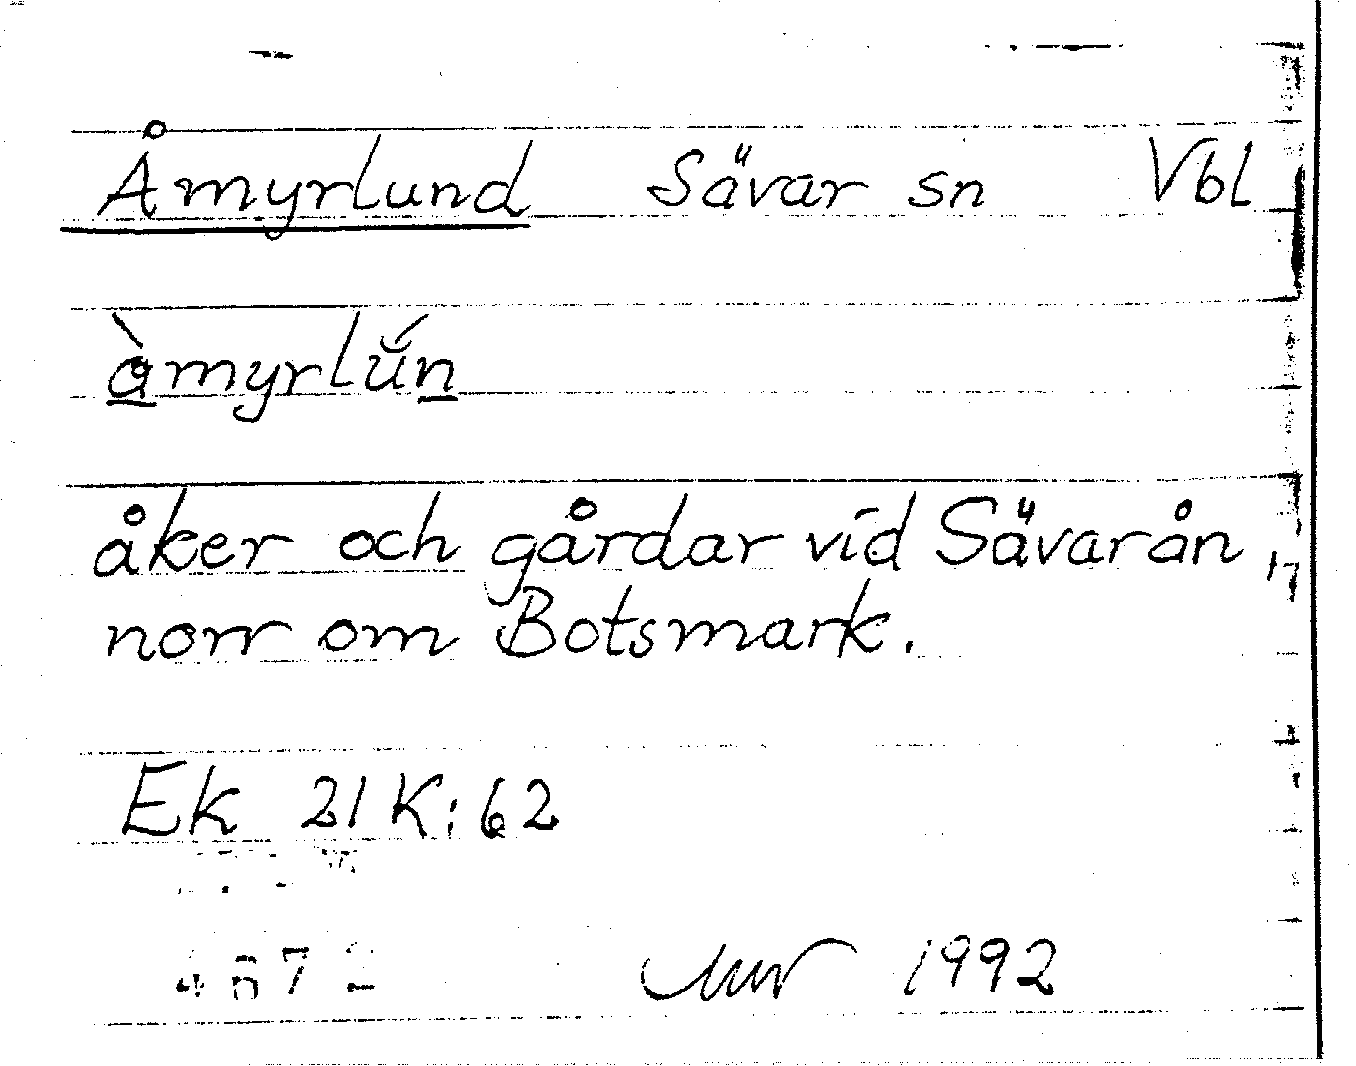 Åmyrlund Sävar sn Vbl
åmyrlun
åker och gårdar vid Sävarån,
norr om Botsmark.
Ek 21K:62
1992